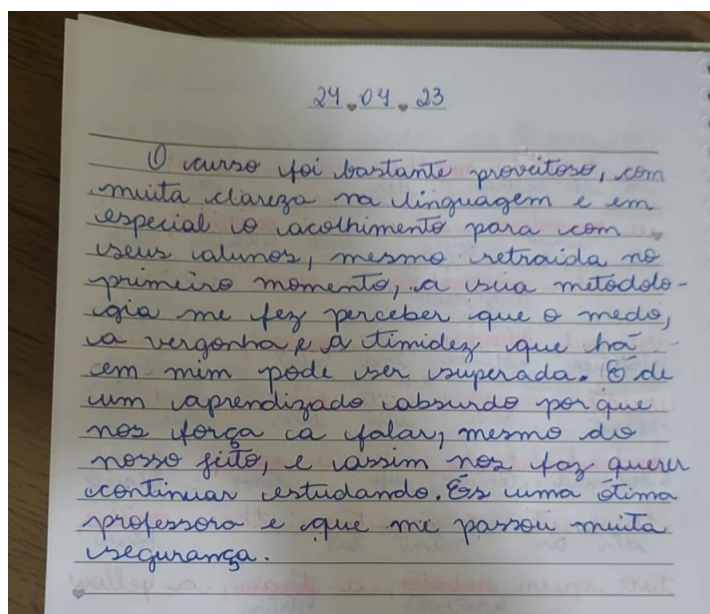 24.04.23
O curso foi bastante proveitoso, com
muita clareza na linguagem e em
especial o acolhimento para com
seus alunos, mesmo retraida no
primeiro momento, a sua metodolo-
gia me fez perceber que o medo,
a vergonha e a timidez que há
em mim pode ser superada. É de
um aprendizado absurdo porque
nos força a falar, mesmo do
nosso jeito, e assim nos faz querer
continuar estudando. És uma ótima
professora e que me passou muita
segurança.